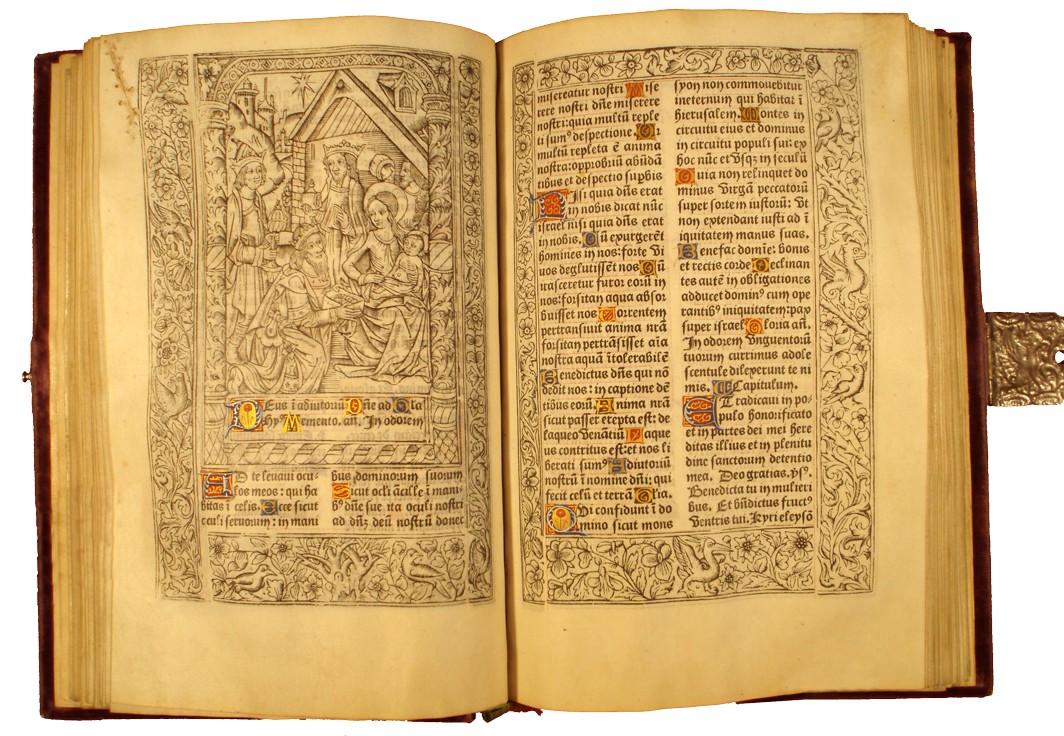 Deus ī adiutoriū Dñe ad Gla
Hyꝰ Memento. añ. In odorem
AD te leuaui ocu-
los meos: qui ha
bitas ī celis. Ecce sicut
oculi seruorum: in mani
bus dominorum suorum
Sicut ocłi ācille ī mani
bꝰ dñe sue ita oculi nostri
ad dñꝫ deū nostrū donec
misereatur nostri Mise
rere nostri dñe miserere
nostri: quia multū reple
ti sumꝰ despectione. Qr
multū repleta ē anima
nostra: opprobriū abūdā
tibus et despectio supbis
NIsi quia dñs erat
in nobis dicat nūc
israel nisi quia dñs erat
in nobis. Cū exurgerēt
homines in nos: forte vi
uos deglutissēt nos Cū
irasceretur furor eorū in
nos: forsitan aqua absor
buisset nos Torrentem
pertransiuit anima nrā
forsitan pertrāsisset aīa
nostra aquā ītolerabilē
Benedictus dñs qui nō
dedit nos: in captione dē
tibus eorū. Anima nrā
sicut passer erepta est: de
laqueo venātiū Laque
us contritus est: et nos li
berati sumꝰ Adiutoriū
nostrū ī nomine dñi: qui
fecit celū et terrā Glia.
QVi confidunt ī do
mino sicut mons
syon non commouebitur
ineternum qui habitat ī
hierusalem. Montes in
circuitu eius et dominus
in circuitu populi sui: ex
hoc nūc et vsqꝫ in seculū
Quia non relinquet do
minus virgā peccatorū
super sortem iustorū: vt
non extendant iusti ad ī
iquitatem manus suas.
Benefac domīe: bonis
et rectis corde Declinan
tes autē in obligationes
adducet dominꝰ cum ope
rantibꝰ iniquitatem: pax
super israel Gloria añ.
In odorem vnguentorū
tuorum currimus adole
scentule dilexerunt te ni
mis. Capitulum.
ET radicaui in po-
pulo honorificato
et in partes dei mei here
ditas illius et in plenitu
dine sanctorum detentio
mea. Deo gratias. vsꝰ.
Benedicta tu in mulieri
bus. Et bñdictus fructꝰ
ventris tui. Kyri eleysō